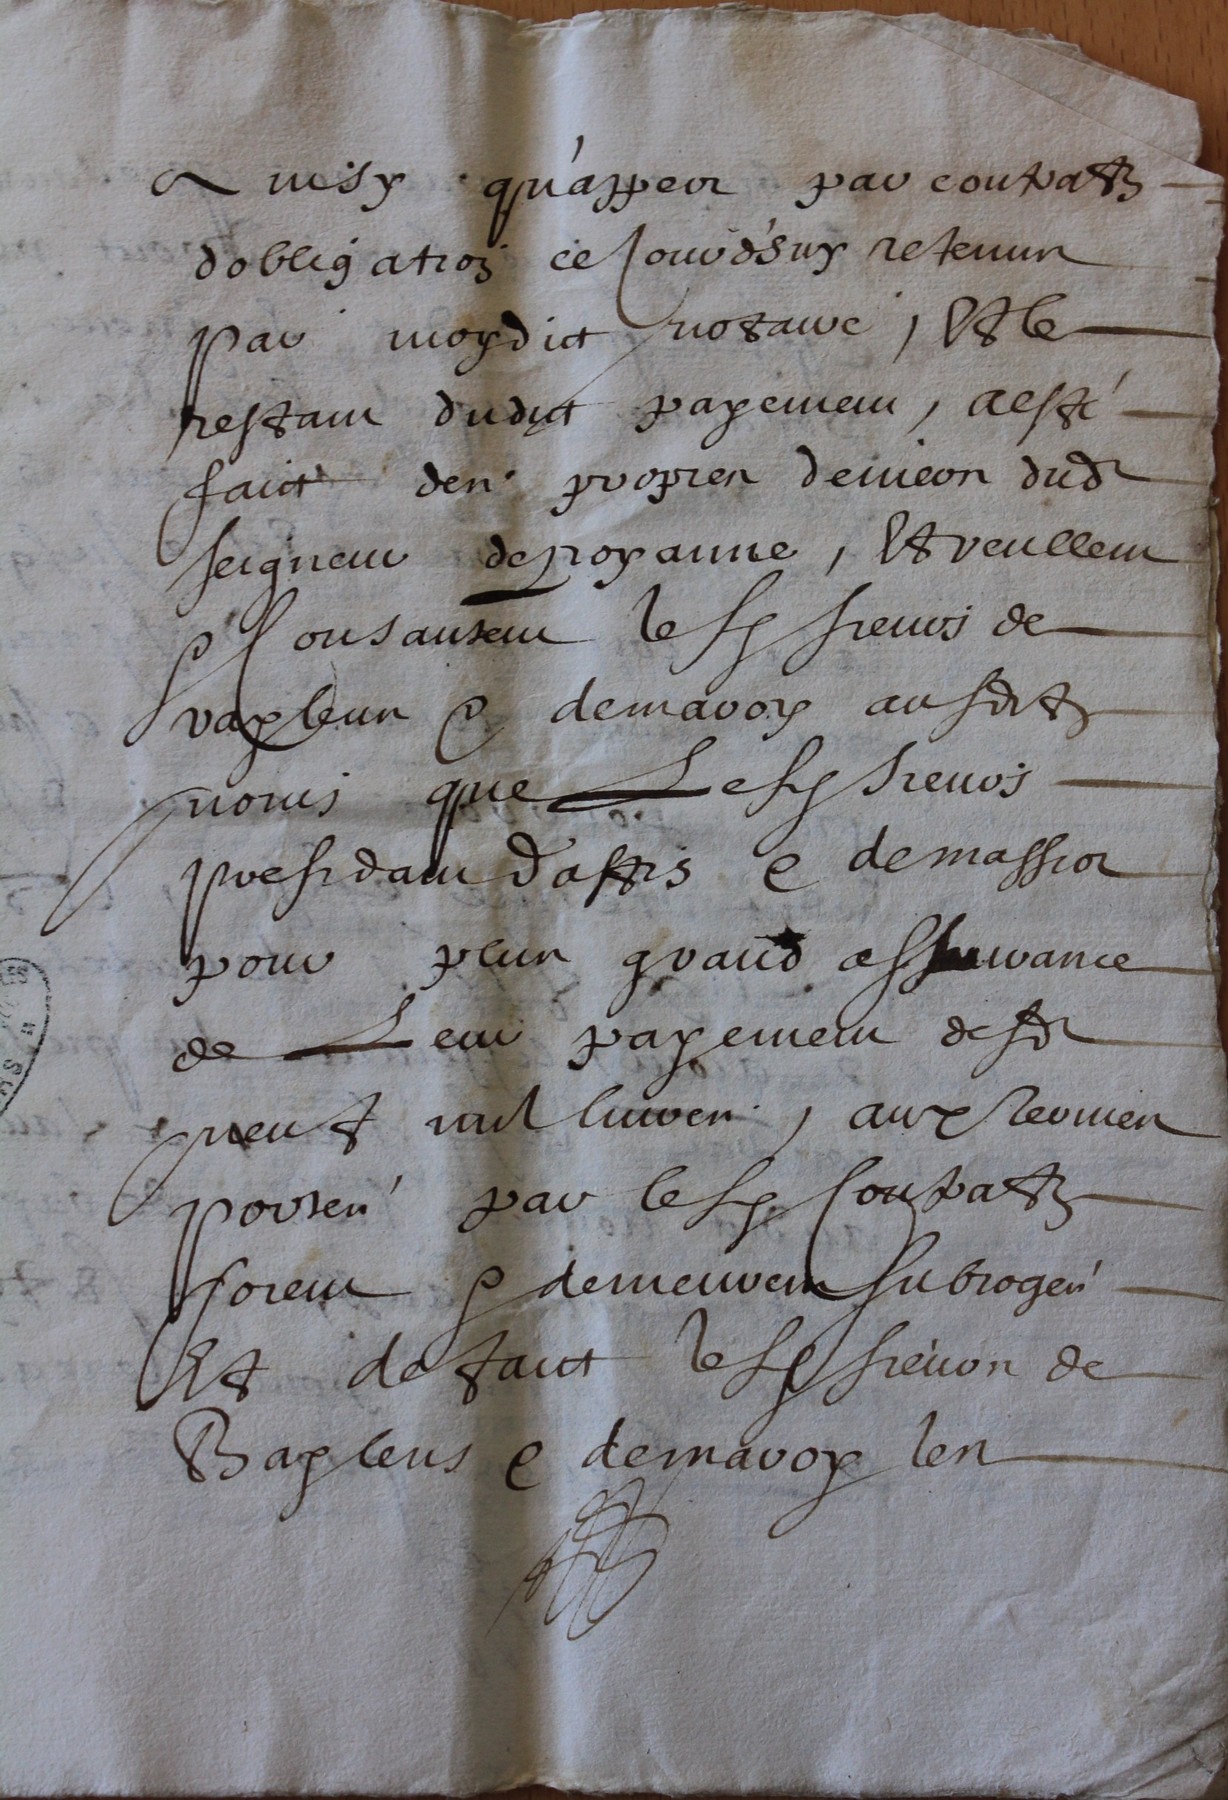 Ainsy qu'appert par contratz
d'obligation ce jourd'huy retenus
par moydict notaire, Et le
restant dudict payement, a esté
faict des propres deniers dud
seigneur de poyanne, Et veullent
& consantent lesd sieurs de
vaylens & demavoy ausdtz
noms que Lesd sieurs
presidant d'affis & demassiot
pour plus grand assurance
de Leur payement desd
neuf mil livres, aux termes
portés par lesd Contratz
soient & demeurent subrogés
Et de faict lesd sieurs de
Baylens & demavoy les